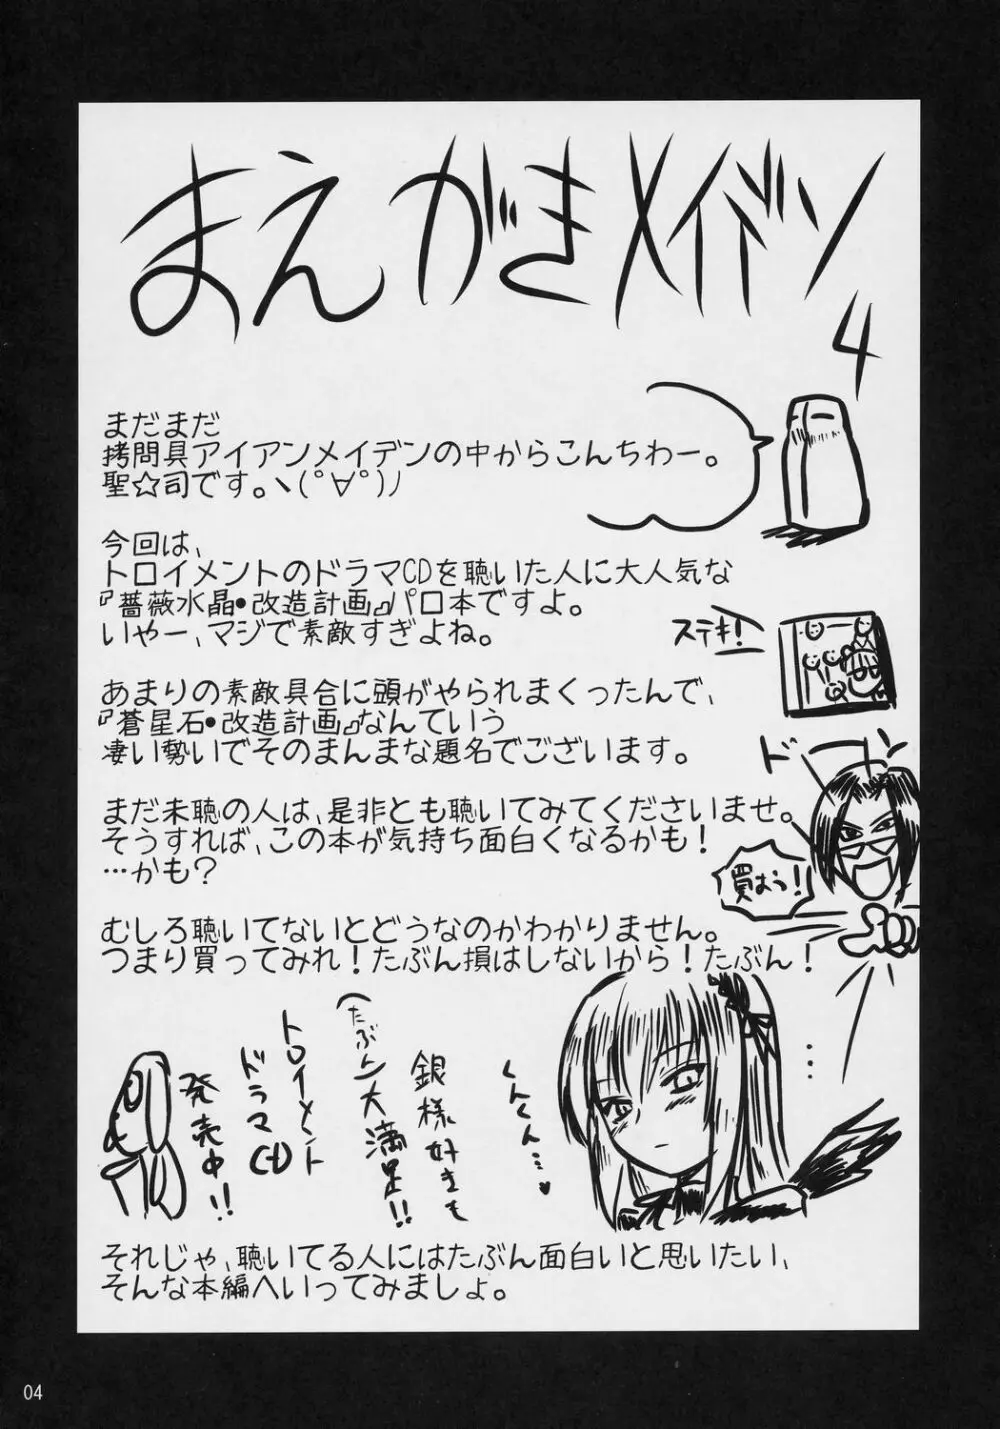 まえがきメイデン
4
まだまだ
拷問具アイアンメイデンの中からこんちわー。
聖☆司です。ヽ(ﾟ∀ﾟ)ﾉ
今回は、
トロイメントのドラマCDを聴いた人に大人気な
『薔薇水晶・改造計画』パロ本ですよ。
いやー、マジで素敵すぎよね。
ステキ!
あまりの素敵具合に頭がやられまくったんで、
『蒼星石・改造計画』なんていう
凄い勢いでそのまんまな題名でございます。
ドン
まだ未聴の人は、是非とも聴いてみてくださいませ。
そうすれば、この本が気持ち面白くなるかも!
…かも?
買おう!
むしろ聴いてないとどうなのかわかりません。
つまり買ってみれ!たぶん損はしないから!たぶん!
…
くんくん…♥
銀様好きも
(たぶん)大満足!!
トロイメント
ドラマCD
発売中!!
それじゃ、聴いてる人にはたぶん面白いと思いたい、
そんな本編へいってみましょ。
04